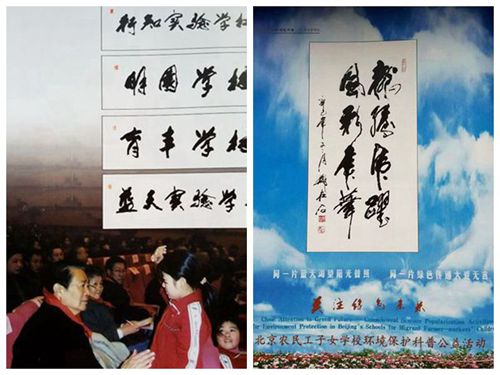 行知实验学校
明圆学校
育丰学校
蓝天实验学校
龍騰虎躍
同一片蓝天渴望阳光普照 同一片绿色传递大爱无言
关注绿色未来
Close Attention to Green Future— Commonweal Science Popularization Activities
for Environment Protection in Beijing's Schools for Migrant Farmer-workers' Children
北京农民工子女学校环境保护科普公益活动